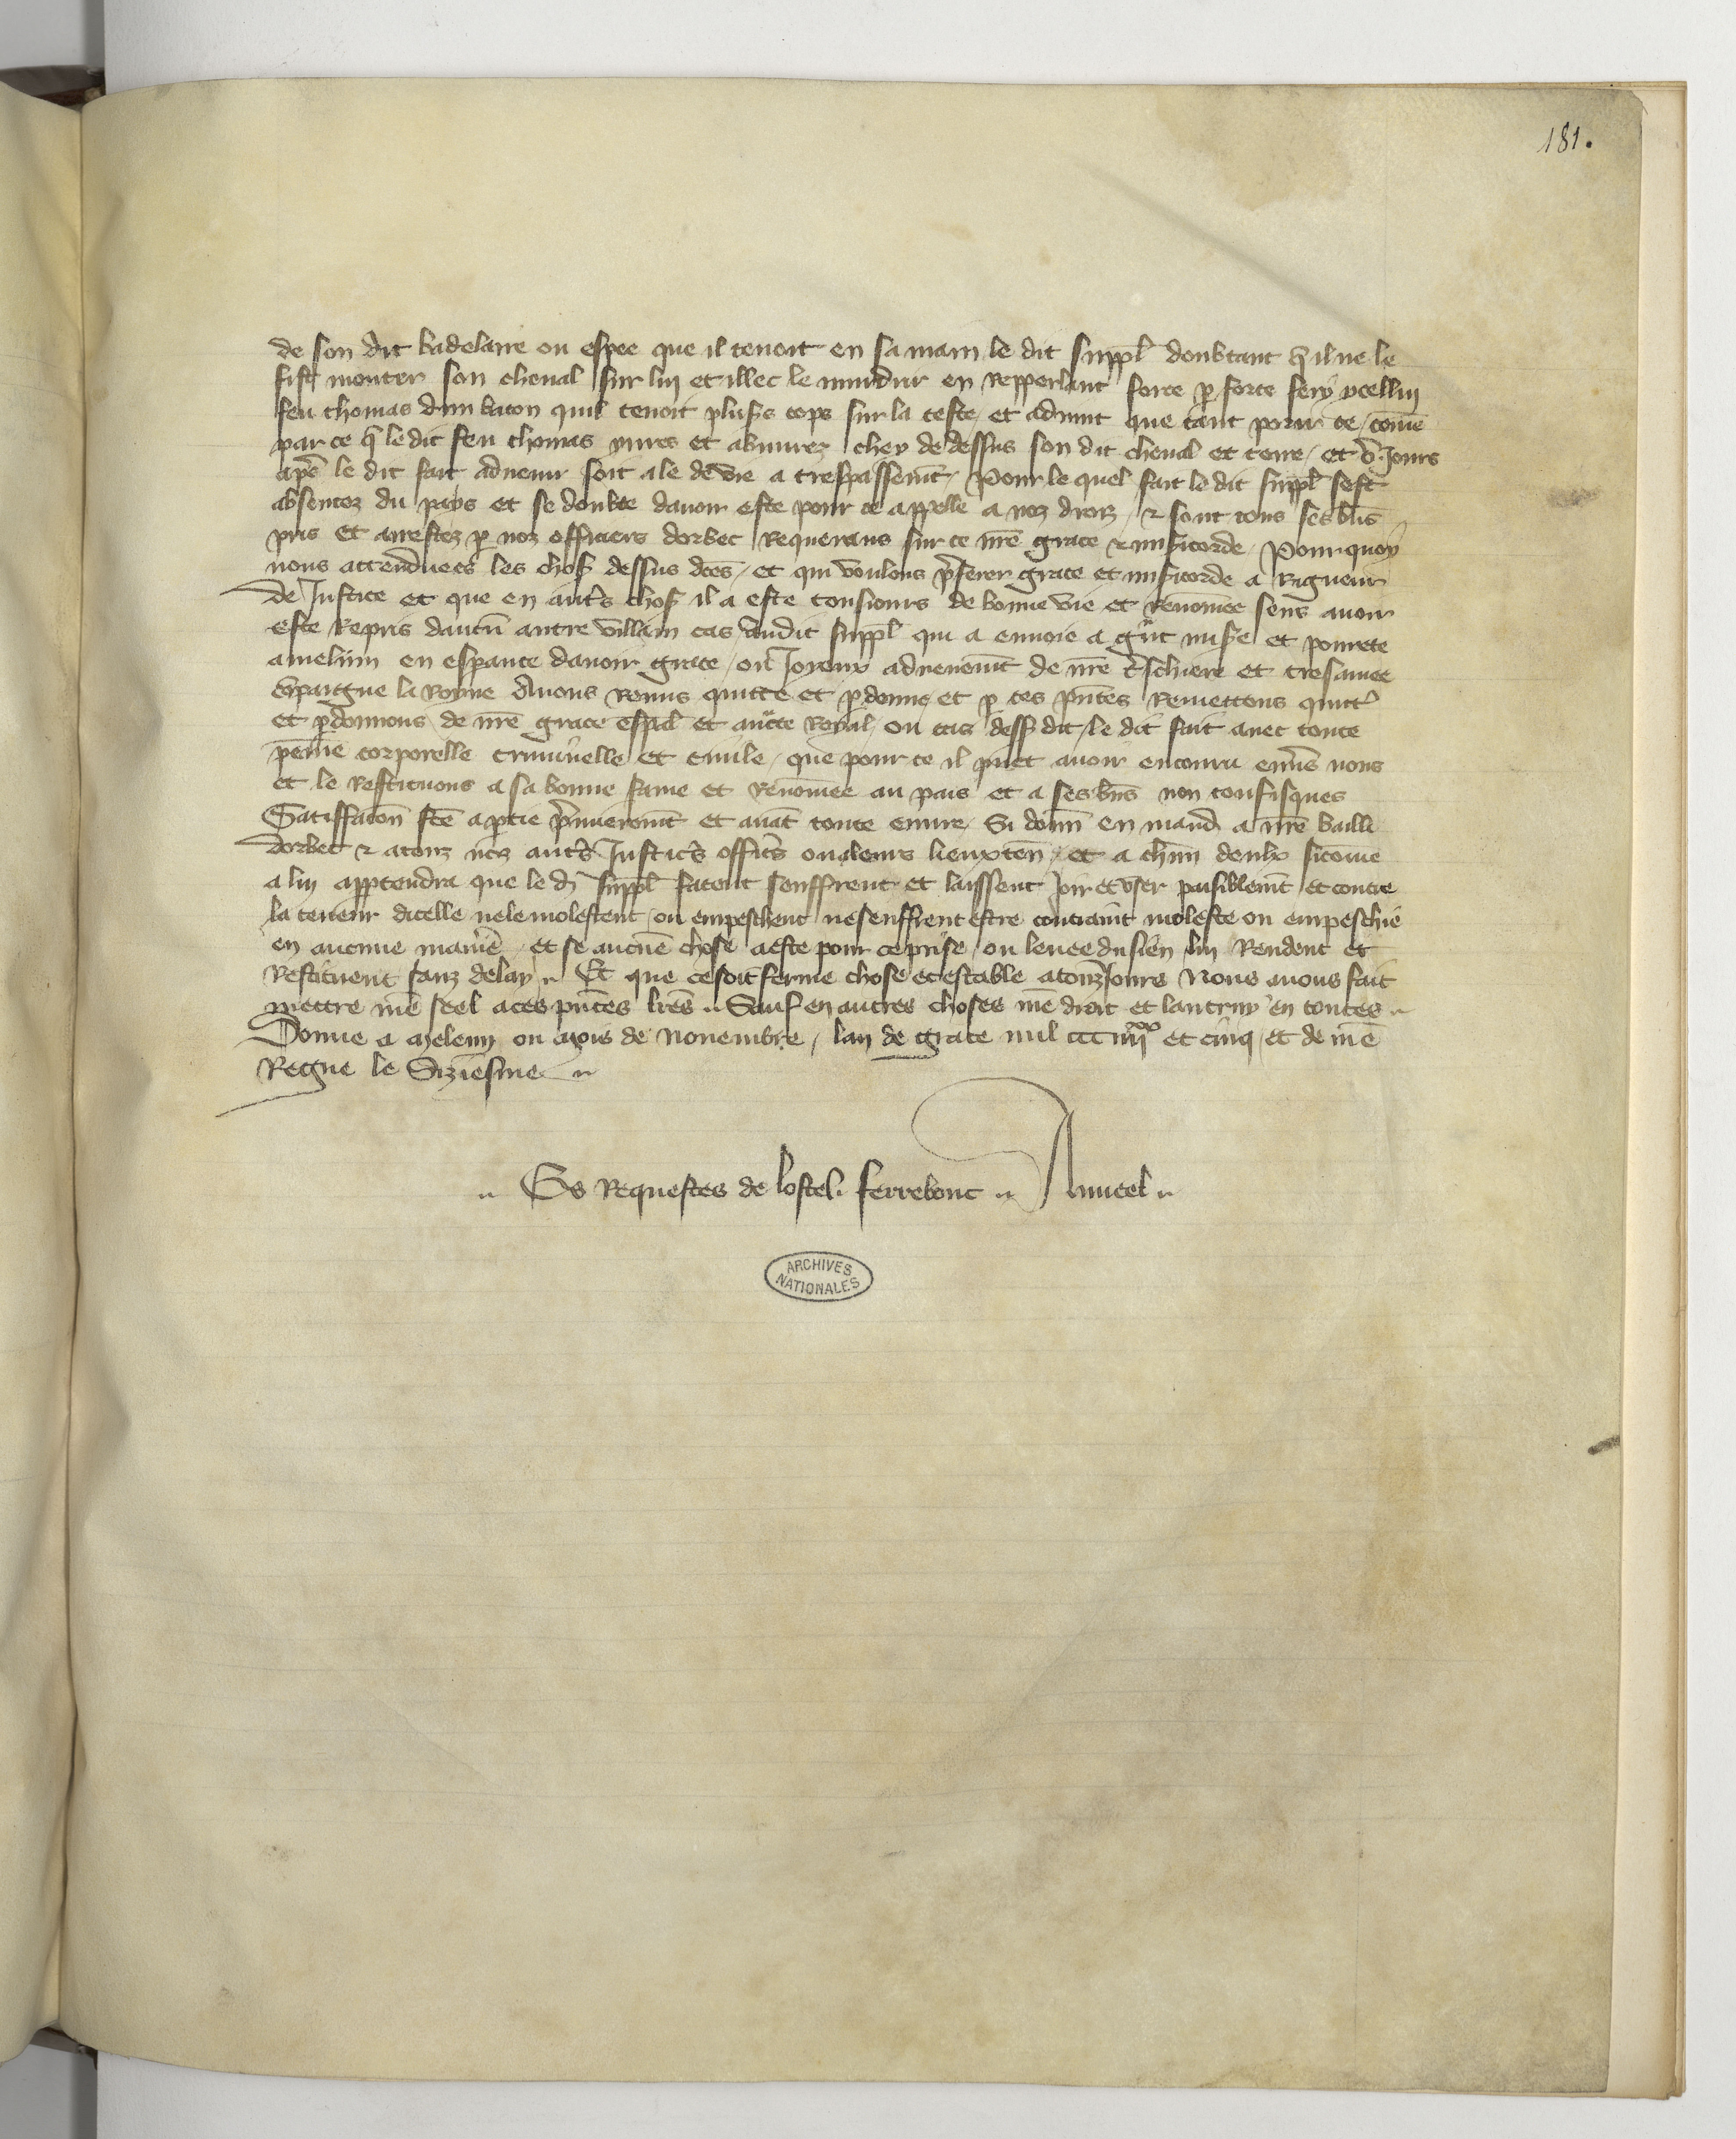 181.
de son dit badelaire ou espee que il tenoit en sa main le dit suppl doubtant q il ne le
fist monter son cheval sur lui et illec le murdrir en repperlant force p force fery ycellui
feu thomas dun baton quil tenoit plus's cops sur la teste et advint que tant pour ce come
par ce q le dit feu thomas yvres et abuvrez chey de dessus son dit cheval et terre et v jours
apē le dit fait advenu soit ale de vie a trespassemt Pour le quel fait le dit suppl sest
absentez du pays et se doubte davoir este pour ce appelle a noz droiz & sont tous ses biēs
pris et arrestez p noz officiers dorbec Requerans sur ce nrē grace & misicorde Pourquoy
nous attendues les chos dessus dcēs et qui voulons pferer grace et misicorde a Rigueur
de Justice et que en autrs chos il a este tousiours de bonne vie et renōmee sens avoir
este Repris dautū autre villain cas audit suppl qui a envoie a grāt misere et povrete
a meleun en esperance davoir grace ou Joyeux advenemt de nrē trschiere et tresamee
compaigne la Royne Avons remis quitte et pdonne et p ces pntēs Remettons quitt
et pdonnons de nrē grace espal et aucte Royal ou cas dess dit le dit fait avec toute
peine corporelle criminelle et civile que pour ce il puet avoir encouru envs nous
et le restituons a sa bonne fame et renōmee au pais et a ses biēs non confisques
Satisffacōn fcē a ptie pmieremt et avāt toute euvre Si donn en mand a nrē bailli
dorbec & a touz noz autrs Justicrs officrs ou a leurs lieuxten et a chūn deulx sicome
a lui apptendra que le d suppl facent seuffrent et laissent joir et user paisiblemt et contre
la teneur dicelle ne le molestent ou empeschent ne seuffrent estre contraint moleste ou empeschie
en aucune maniē et se aucuē chose a este pour ce prise ou levee du sien lui Rendent et
Restituent sanz delay Et que ce soit ferme chose et estable a touz jours Nous avons fait
mettre nrē seel a ces pntēs lrēs Sauf en autres choses nrē droit et lautruy en toutes
Donne a meleun ou mois de Novembre lan de grace mil ccc iiijxx et cinq et de nrē
Regne le Siziesme
Es Requestes de lostel. ferrebouc Anncel
ARCHIVES
NATIONALES